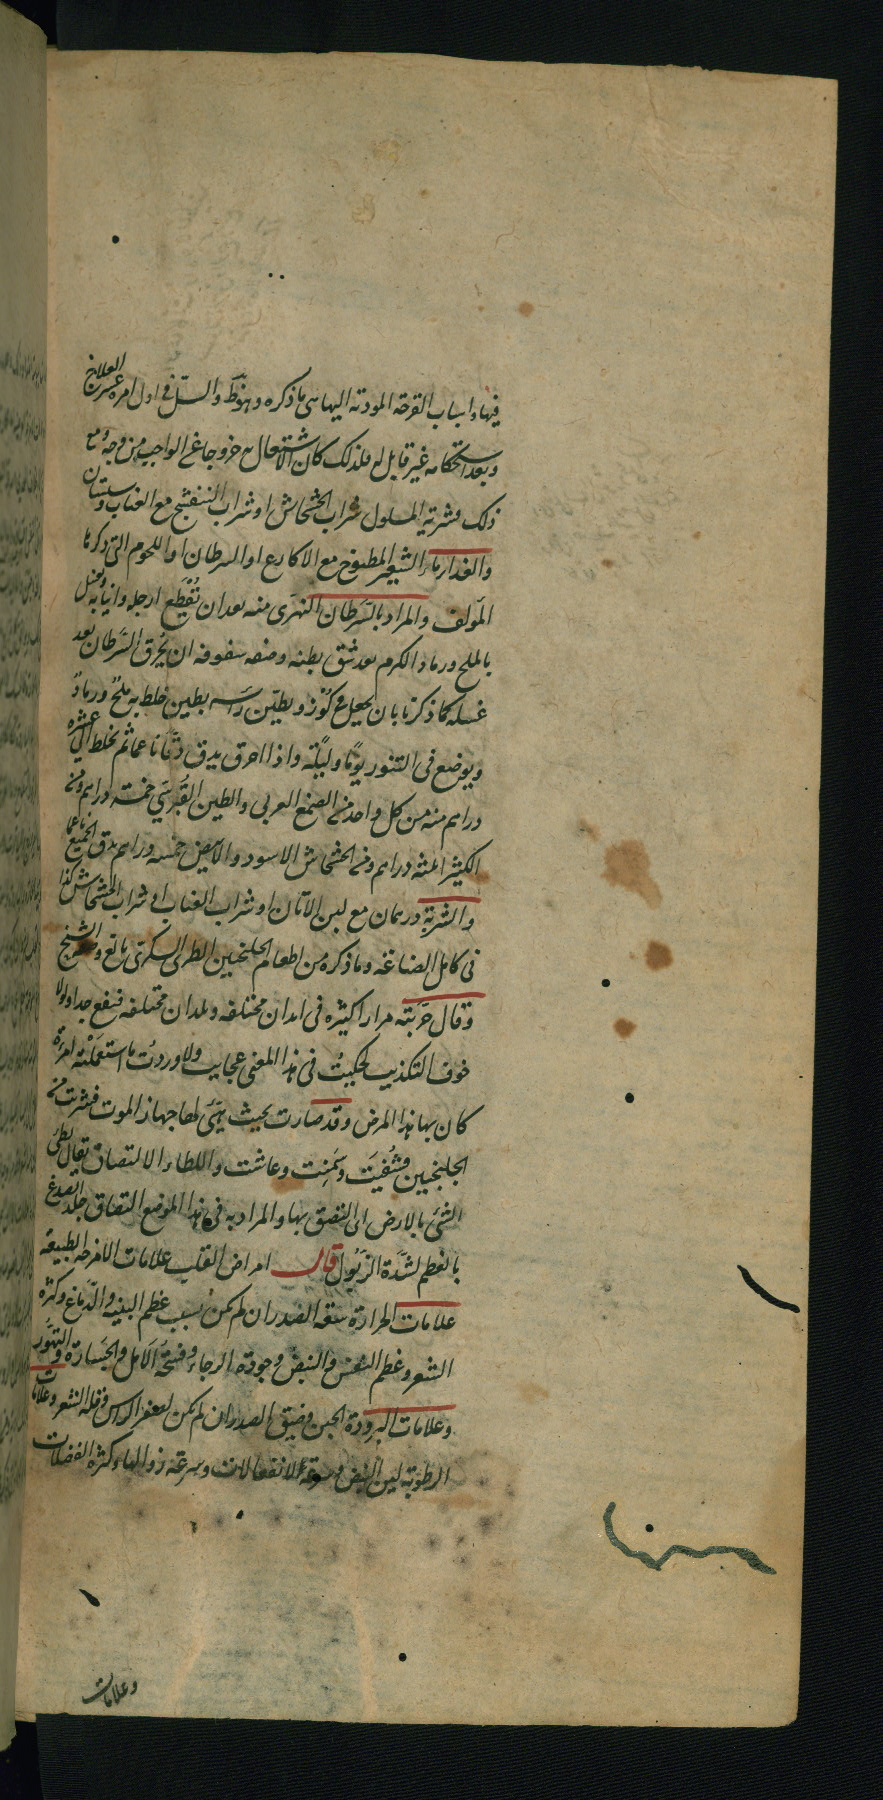 فيها واسباب القرحة المودته اليها هى ما ذكره وهوظ والسل فى اول امره عسر العلاج
وبعد استحكامه غير قابل له فلذلك كان الاشتغال به خروجا عن الواجب من وجه ومع
ذلك فشربة المسلول شراب الخشخاش او شراب البنفسج مع العناب وسپستان
والغذا ماء الشعير المطبوخ مع الاكارع او السرطان او اللحوم التى ذكرها
المؤلف والمراد بالسرطان النهرى منه بعد ان تقطع ارجله وانيابه ويغسل
بالملح ورماد الكرم بعد شق بطنه وصفه سفوفه ان يحرق السرطان بعد
غسله كما ذكرنا بان يجعل فى كوز ويطين راسه بطين خلط به ملح ورماد
ويوضع فى التنور يوما وليلة واذا احرق يدق دقا ناعما ثم يخلط الى عشرة
دراهم منه من كل واحد من الصمغ العربى والطين القبرسى خمسة دراهم ومن
الكثيرا ثلثه دراهم ومن الخشخاش الاسود والابيض خمسه دراهم يدق الجميع ناعما
والشربة درهمان مع لبن الاتان او شراب العناب او شراب الخشخاش كذا
فى كامل الصناعه وما ذكره من اطعام الجلنجبين الطرى السكرى نافع وصححه الشيخ
وقال جربته مرارا كثيره فى ابدان مختلفه وبلدان مختلفه فنفع جدا ولولا
خوف التكذيب لحكيت فى هذا المعنى عجايب ولاوردت ما استعملته امرءة
كان بها هذا المرض وقد صارت بحيث يهيئ لها جهاز الموت فشربت من
الجلنجبين فشفيت وسمنت وعاشت واللطاء الالتصاق يقال لطئ
الشئ بالارض اى التصق بها والمراد به فى هذا الموضع التصاق جلد الصدغ
بالعظم لشدة الذبول قال امراض القلب علامات الامزجه الطبيعه
علامات الحرارة سعة الصدر ان لم يكن بسبب عظم البنيه والدماغ وكثرة
الشعر وعظم النفس والنبض وجوده الرجاء وفسحة الامل والجسارة والتهور
وعلامات البرودة الجبن وضيق الصدر ان لم يكن لصغر الراس وقله الشعر وعلامات
الرطوبة لين النبض وسرعة الانفعالات وسرعة زوالها وكثرة الفضلات
وعلامات